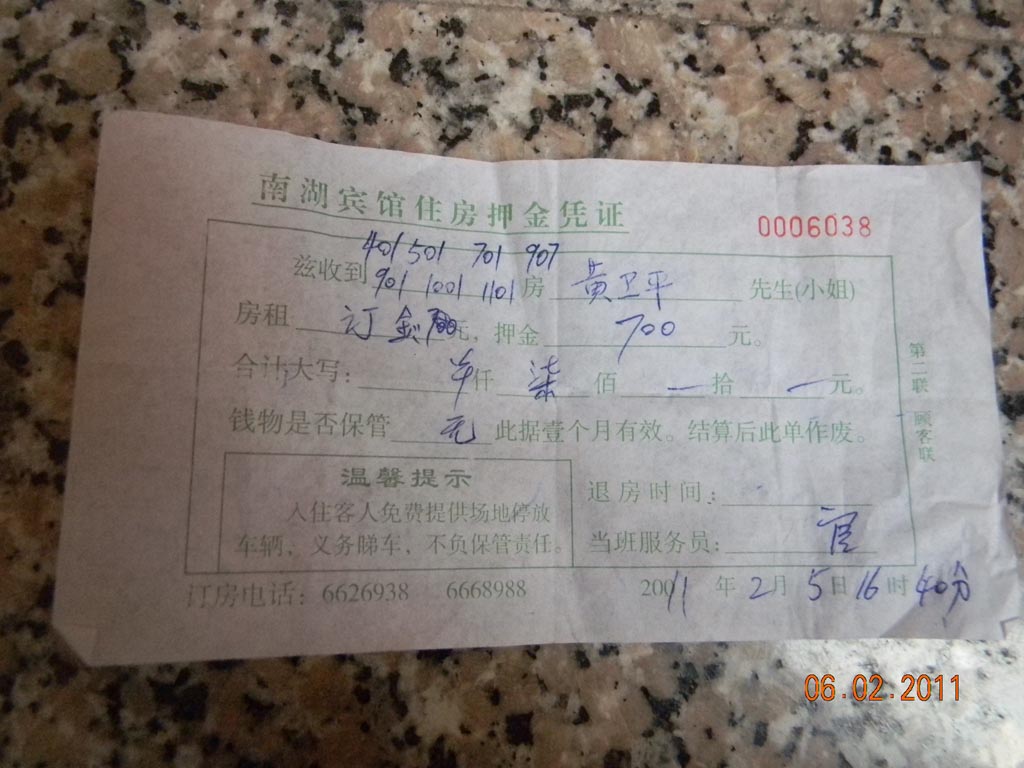 南湖宾馆住房押金凭证
0006038
401 501 701 907
兹收到 901 1001 1101 房 黄卫平 先生(小姐)
房租 订金 元，押金 700 元。
合计大写： 仟 柒 佰 一 拾 一 元。
钱物是否保管 无 此据壹个月有效。结算后此单作废。
第二联 顾客联
温馨提示
入住客人免费提供场地停放
车辆，义务睇车，不负保管责任。
退房时间：
当班服务员： 官
订房电话：6626938 6668988
20011 年 2 月 5 日 16 时 40分
06.02.2011